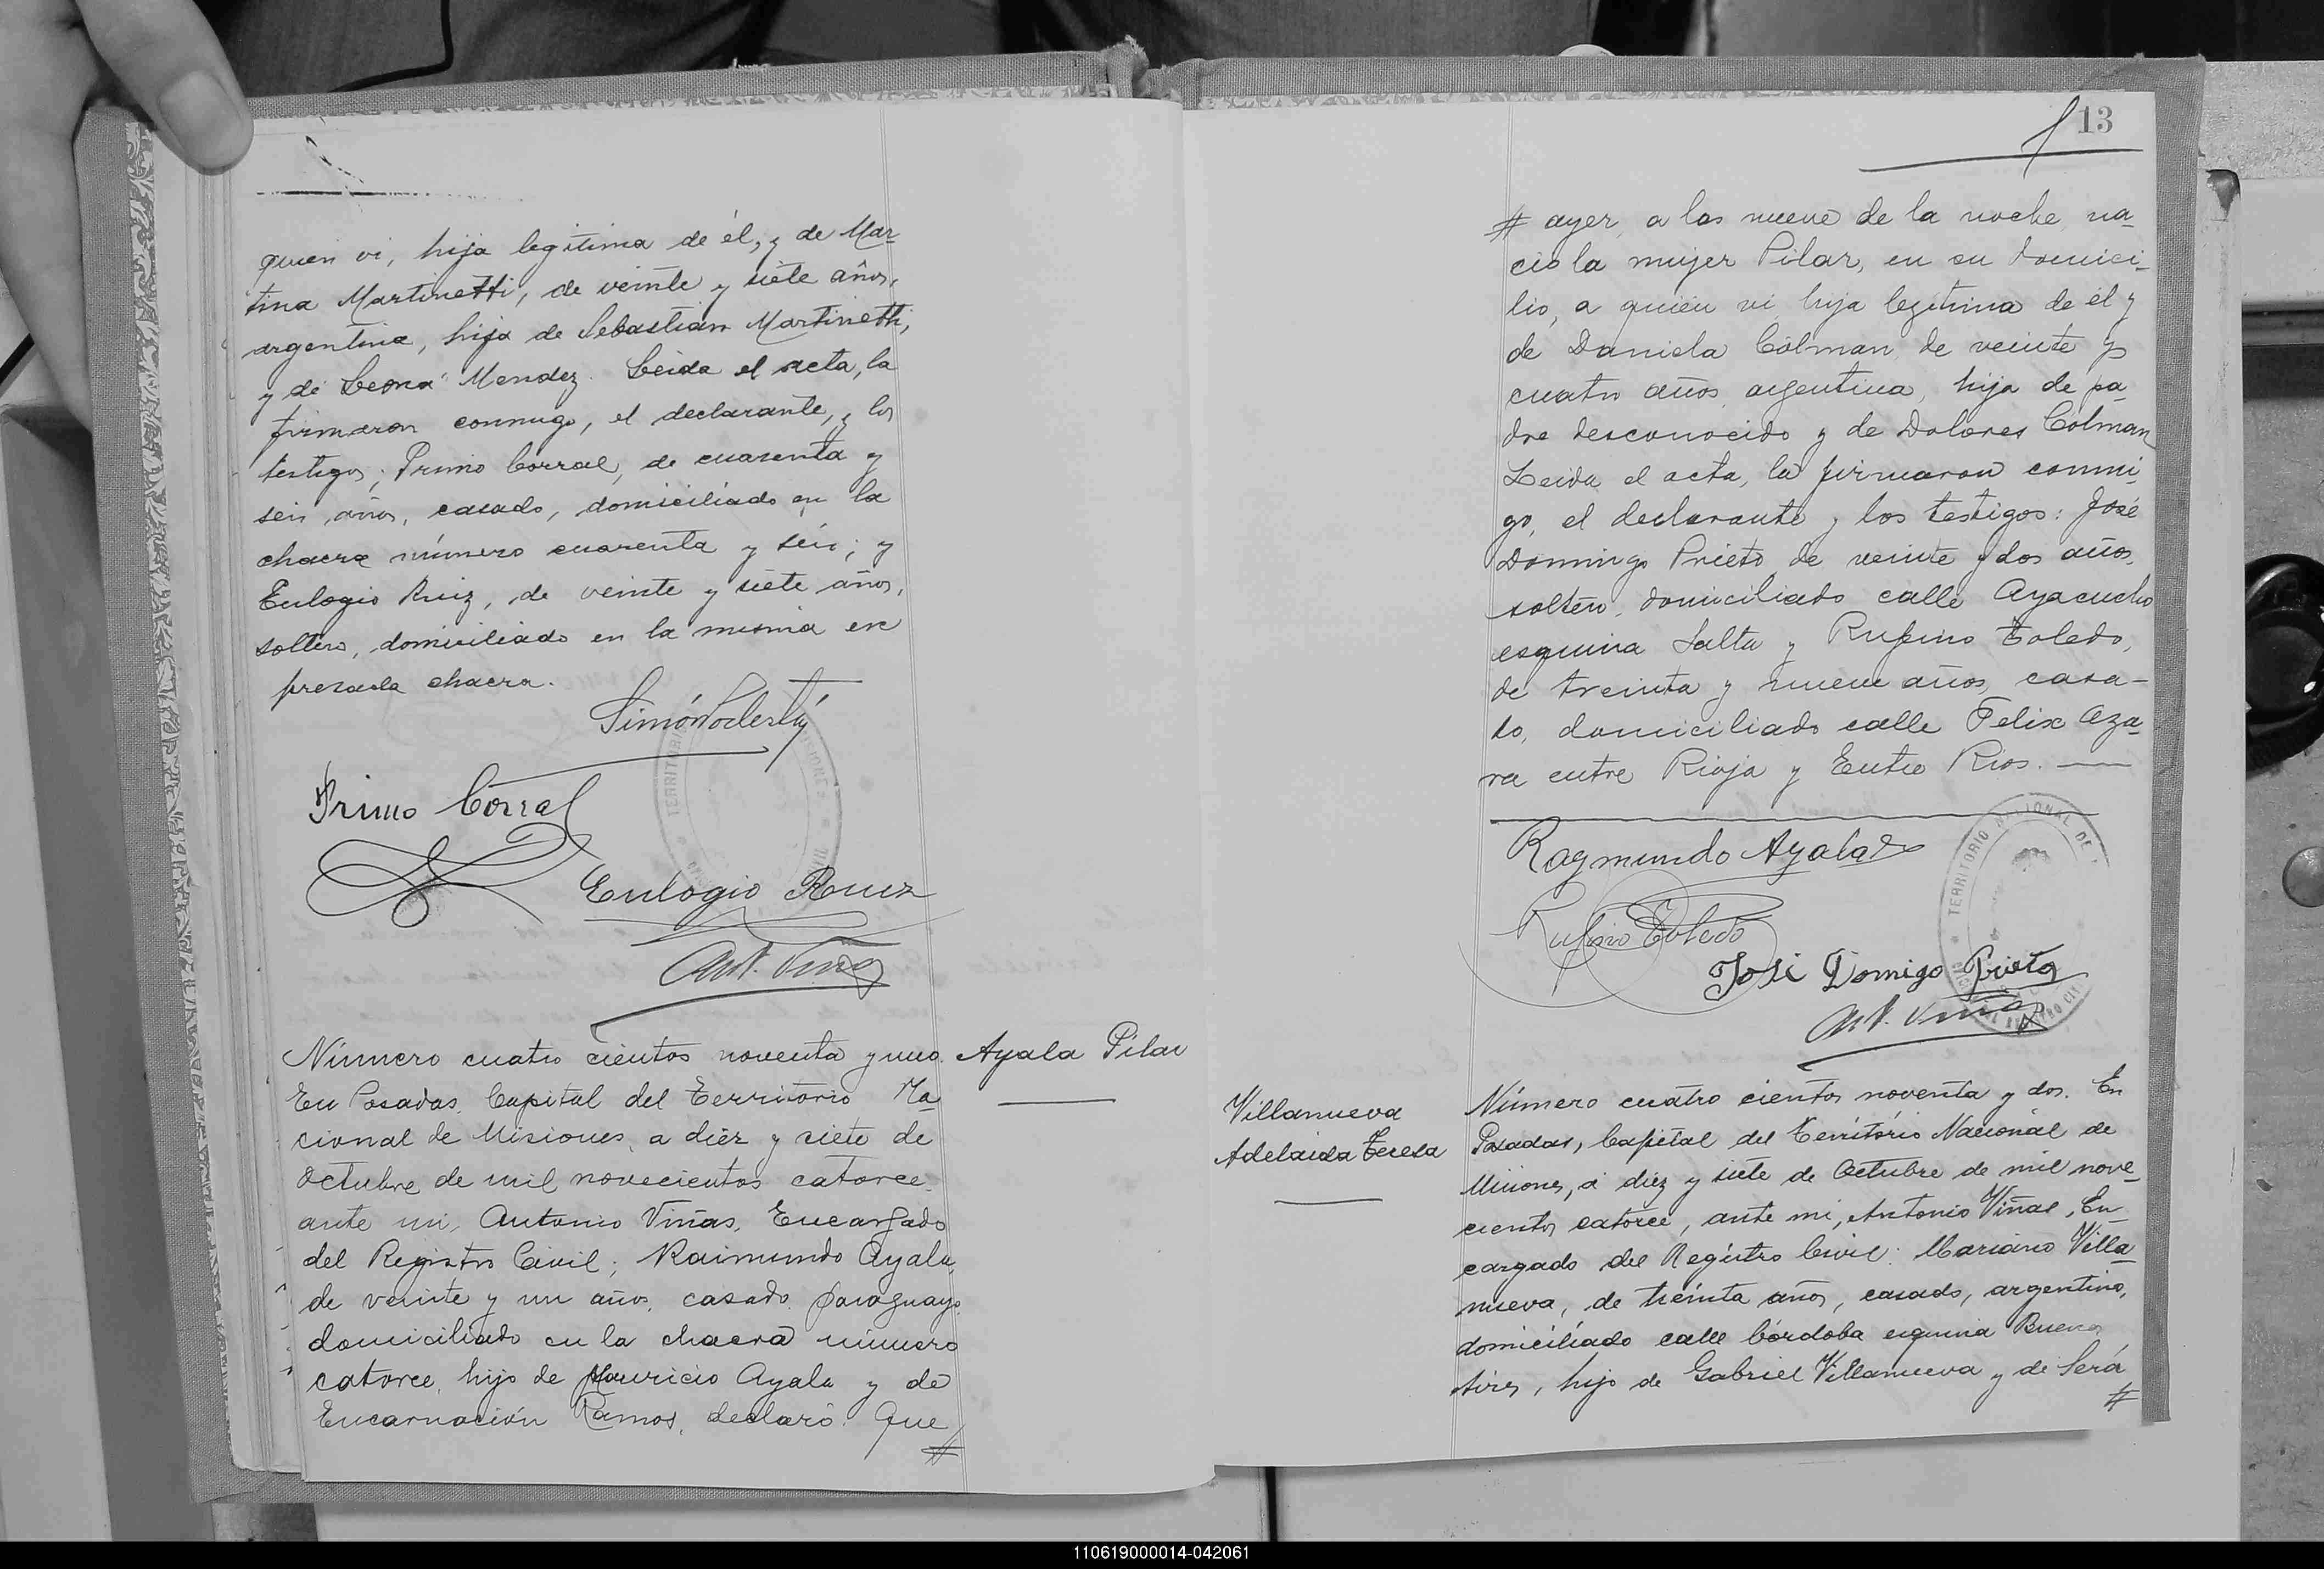 quien vi, hija legitima de él, y de Mar-
tina Martinetti, de veinte y siete años,
argentina, hija de Sebastián Martinetti,
y de Leona Mendez. Leida el acta, la
firmaron conmigo, el declarante, y los
testigos; Primo Corral, de cuarenta y
seis años, casado, domiciliado en la
chacra número cuarenta y seis; y
Eulogio Ruiz, de veinte y siete años,
soltero, domiciliado en la misma ex
presada chacra.
Simón Poderlá
Primo Corral
Eulogio Ruiz
Ant. Viñas
Número cuatro cientos noventa y uno.
Ayala Pilar
En Posadas, Capital del Territorio Na
cional de Misiones, a diez y siete de
Octubre de mil novecientos catorce,
ante mi, Antonio Viñas, Encargado
del Registro Civil; Raimundo Ayala,
de veinte y un años, casado, paraguayo,
domiciliado en la chacra número
catorce, hijo de Mauricio Ayala y de
Encarnación Ramos, declaró: Que
#
13
# ayer, a las nueve de la noche, na-
cio la mujer Pilar, en su domici-
lio, a quien vi, hija legitima de él y
de Daniela Colman, de veinte y
cuatro años, argentina, hija de pa-
dre desconocido y de Dolores Colman
Leida el acta, la firmaron conmi-
go, el declarante y los testigos: José
Domingo Prieto, de veinte y dos años,
soltero, domiciliado calle Ayacucho
esquina Salta y Rufino Toledo,
de treinta y nueve años, casa-
do, domiciliado calle Felix Aza-
ra entre Rioja y Entre Rios.
Raymundo Ayala
Rufino Toledo
José Domigo Prieto
Ant. Viñas
TERRITORIO NACIONAL DE
Villanueva
Adelaida Teresa
Número cuatro cientos noventa y dos. En
Posadas, Capital del Territorio Nacional de
Misiones, a diez y siete de Octubre de mil nove-
cientos catorce, ante mi, Antonio Viñas, En-
cargado del Registro Civil: Mariano Villa-
nueva, de treinta años, casado, argentino,
domiciliado calle Córdoba esquina Buenos
Aires, hijo de Gabriel Villanueva y de Será
#
110619000014-042061